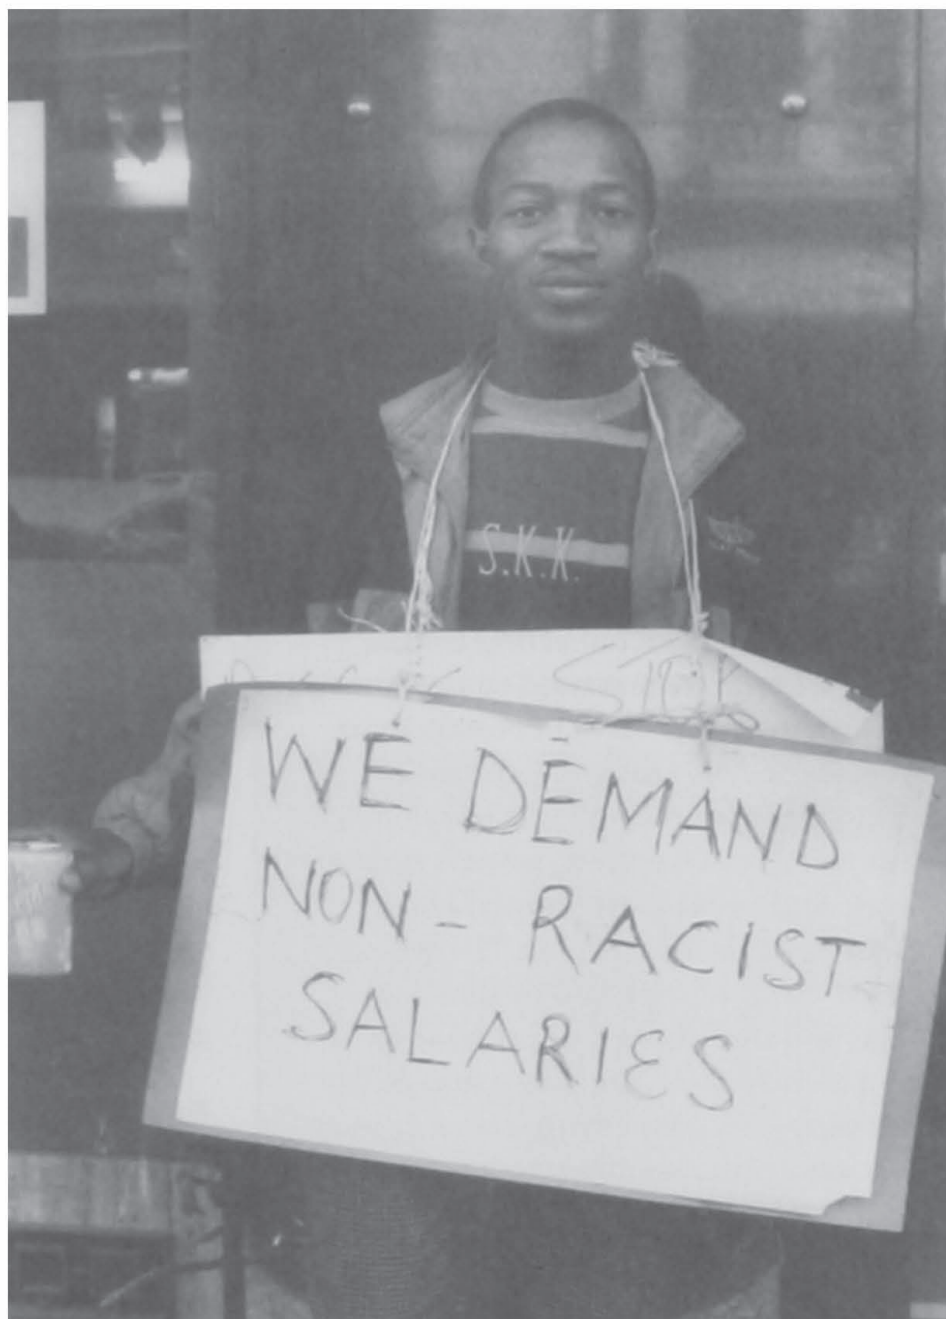 S.K.K.
STOP
WE DEMAND
NON - RACIST
SALARIES